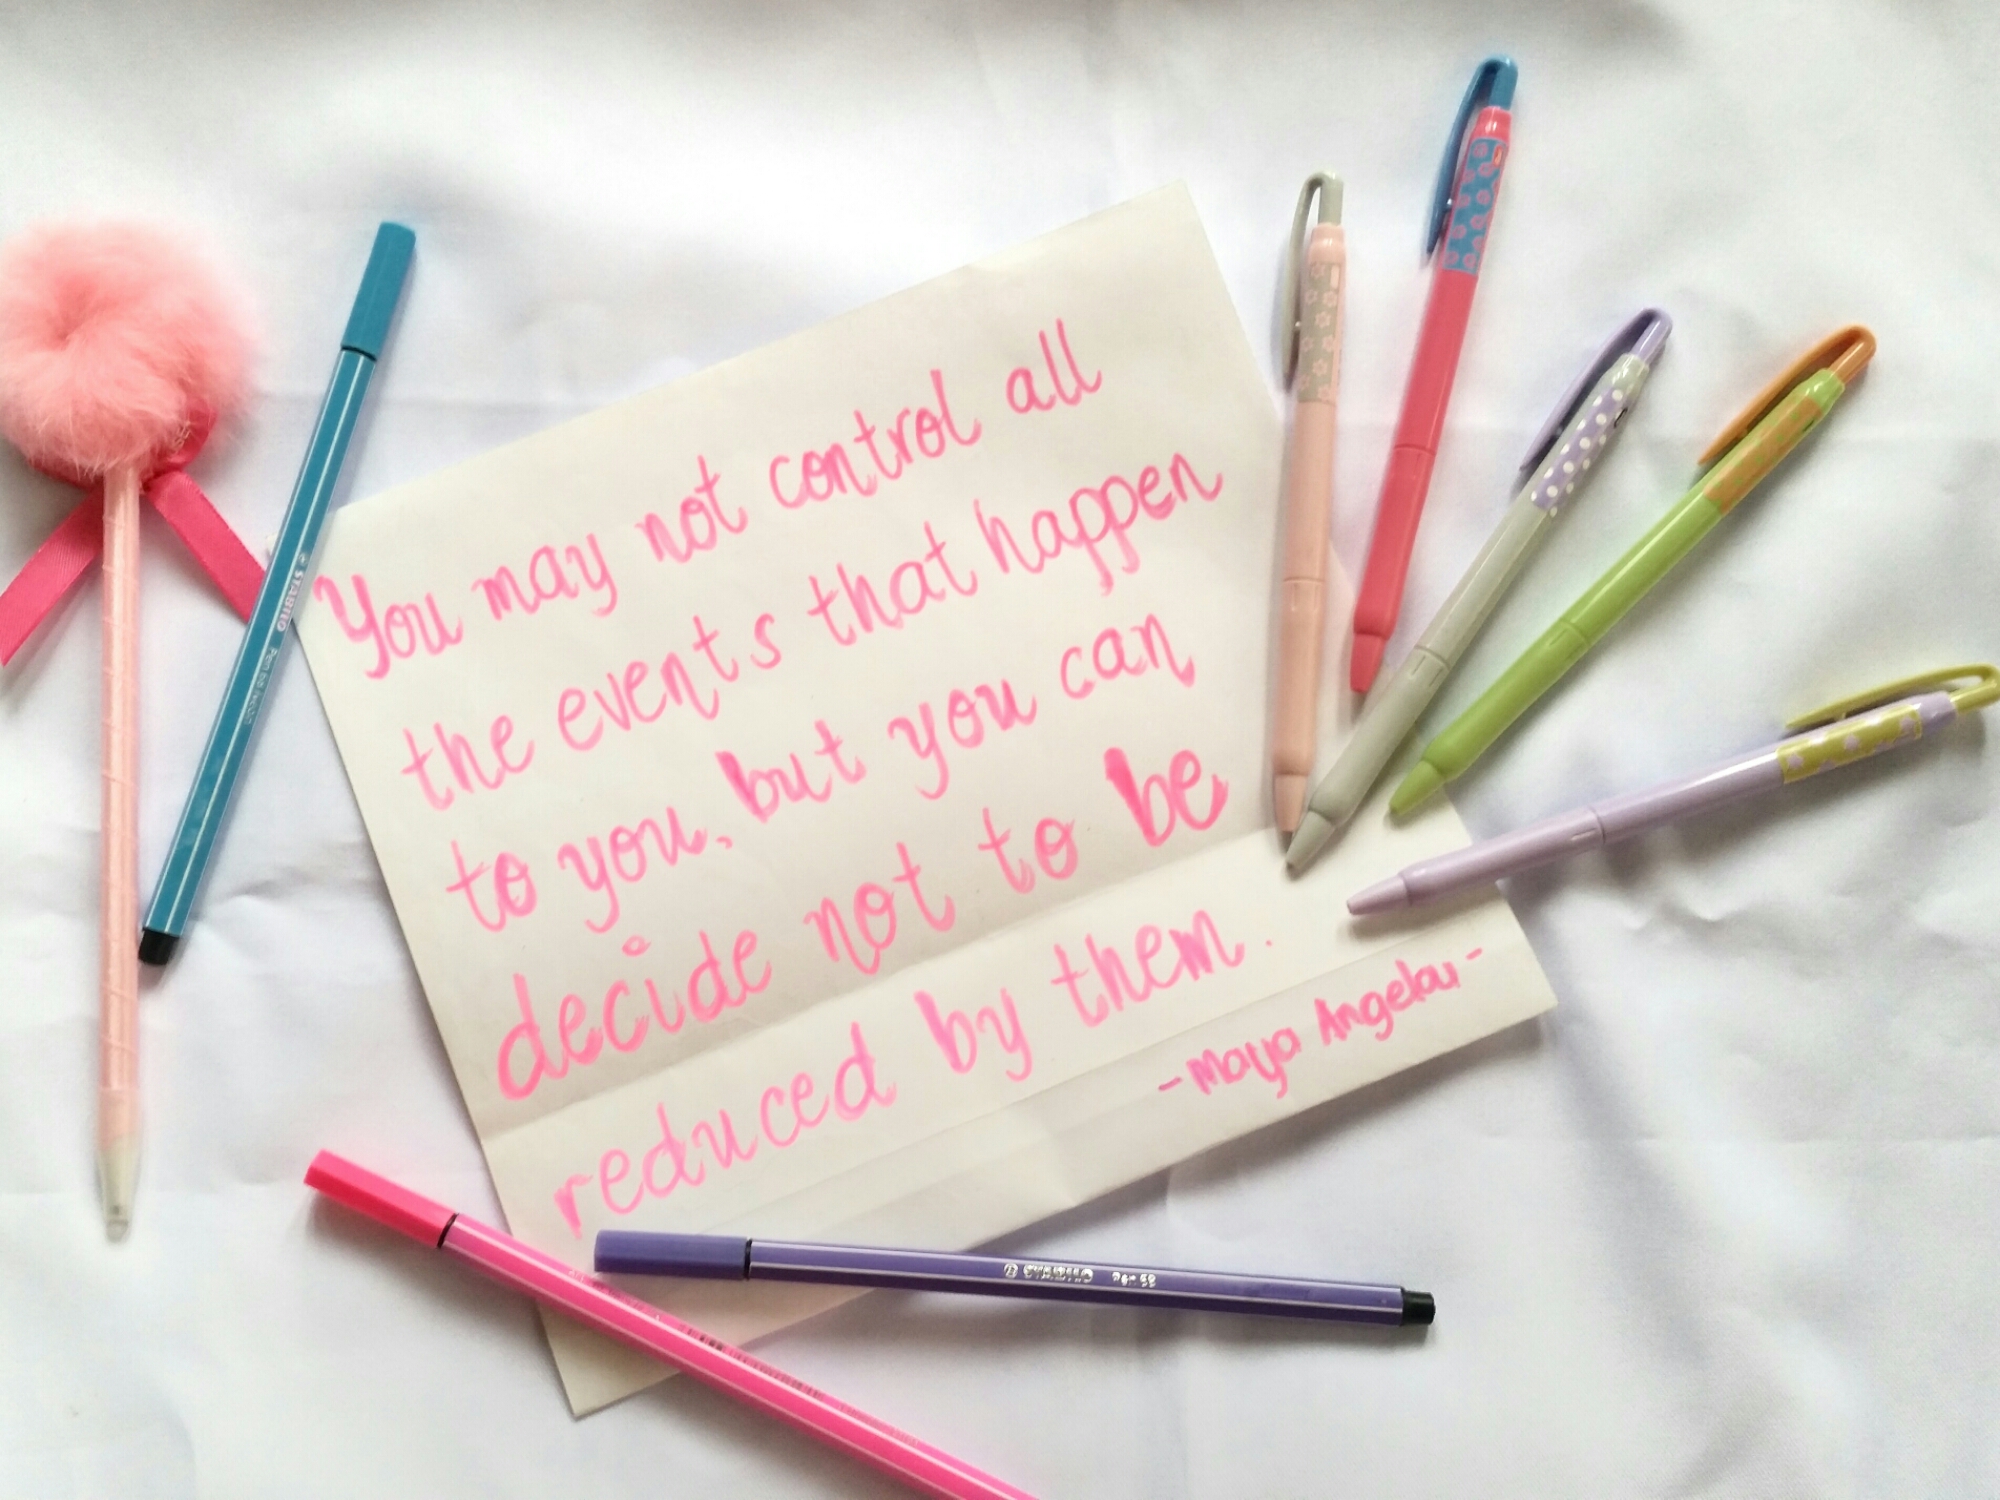 You may not control all
the events that happen
to you, but you can
decide not to be
reduced by them.
-Maya Angelou-
STABILO
Pen 68
STABILO Pen 68